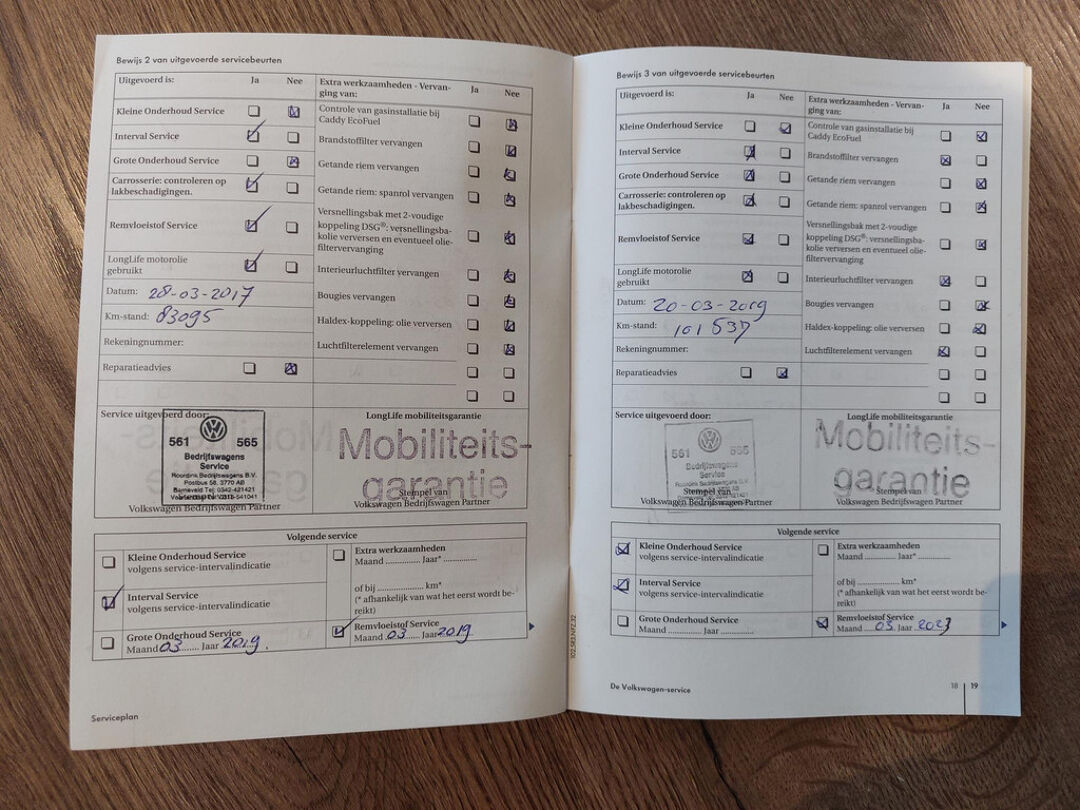 Bewijs 2 van uitgevoerde servicebeurten
Uitgevoerd is: Ja Nee
Kleine Onderhoud Service
Interval Service
Grote Onderhoud Service
Carrosserie: controleren op
lakbeschadigingen.
Remvloeistof Service
LongLife motorolie
gebruikt
Datum: 28-03-2017
Km-stand: 83095
Rekeningnummer:
Reparatieadvies
Extra werkzaamheden - Vervan-
ging van: Ja Nee
Controle van gasinstallatie bij
Caddy EcoFuel
Brandstoffilter vervangen
Getande riem vervangen
Getande riem: spanrol vervangen
Versnellingsbak met 2-voudige
koppeling DSG®: versnellingsba-
kolie verversen en eventueel olie-
filtervervanging
Interieurluchtfilter vervangen
Bougies vervangen
Haldex-koppeling: olie verversen
Luchtfilterelement vervangen
Service uitgevoerd door:
561 565
Bedrijfswagens
Service
Roordink Bedrijfswagens B.V.
Postbus 58, 3770 AB
Barneveld Tel: 0342-421421
Volkswagen Bedrijfswagen Partner
LongLife mobiliteitsgarantie
Mobiliteits-
garantie
Stempel van
Volkswagen Bedrijfswagen Partner
Volgende service
Kleine Onderhoud Service
volgens service-intervalindicatie
Interval Service
volgens service-intervalindicatie
Grote Onderhoud Service
Maand 03 Jaar 2019
Extra werkzaamheden
Maand Jaar*
of bij km*
(* afhankelijk van wat het eerst wordt be-
reikt)
Remvloeistof Service
Maand 03 Jaar 2019
Serviceplan
102.5R3.NFZ.32
Bewijs 3 van uitgevoerde servicebeurten
Uitgevoerd is: Ja Nee
Kleine Onderhoud Service
Interval Service
Grote Onderhoud Service
Carrosserie: controleren op
lakbeschadigingen.
Remvloeistof Service
LongLife motorolie
gebruikt
Datum: 20-03-2019
Km-stand: 101537
Rekeningnummer:
Reparatieadvies
Extra werkzaamheden - Vervan-
ging van: Ja Nee
Controle van gasinstallatie bij
Caddy EcoFuel
Brandstoffilter vervangen
Getande riem vervangen
Getande riem: spanrol vervangen
Versnellingsbak met 2-voudige
koppeling DSG®: versnellingsba-
kolie verversen en eventueel olie-
filtervervanging
Interieurluchtfilter vervangen
Bougies vervangen
Haldex-koppeling: olie verversen
Luchtfilterelement vervangen
Service uitgevoerd door:
561 565
Bedrijfswagens
Service
Stempel van
Volkswagen Bedrijfswagen Partner
LongLife mobiliteitsgarantie
Mobiliteits-
garantie
Stempel van
Volkswagen Bedrijfswagen Partner
Volgende service
Kleine Onderhoud Service
volgens service-intervalindicatie
Interval Service
volgens service-intervalindicatie
Grote Onderhoud Service
Maand Jaar
Extra werkzaamheden
Maand Jaar*
of bij km*
(* afhankelijk van wat het eerst wordt be-
reikt)
Remvloeistof Service
Maand 03 Jaar 2023
De Volkswagen-service
18 19